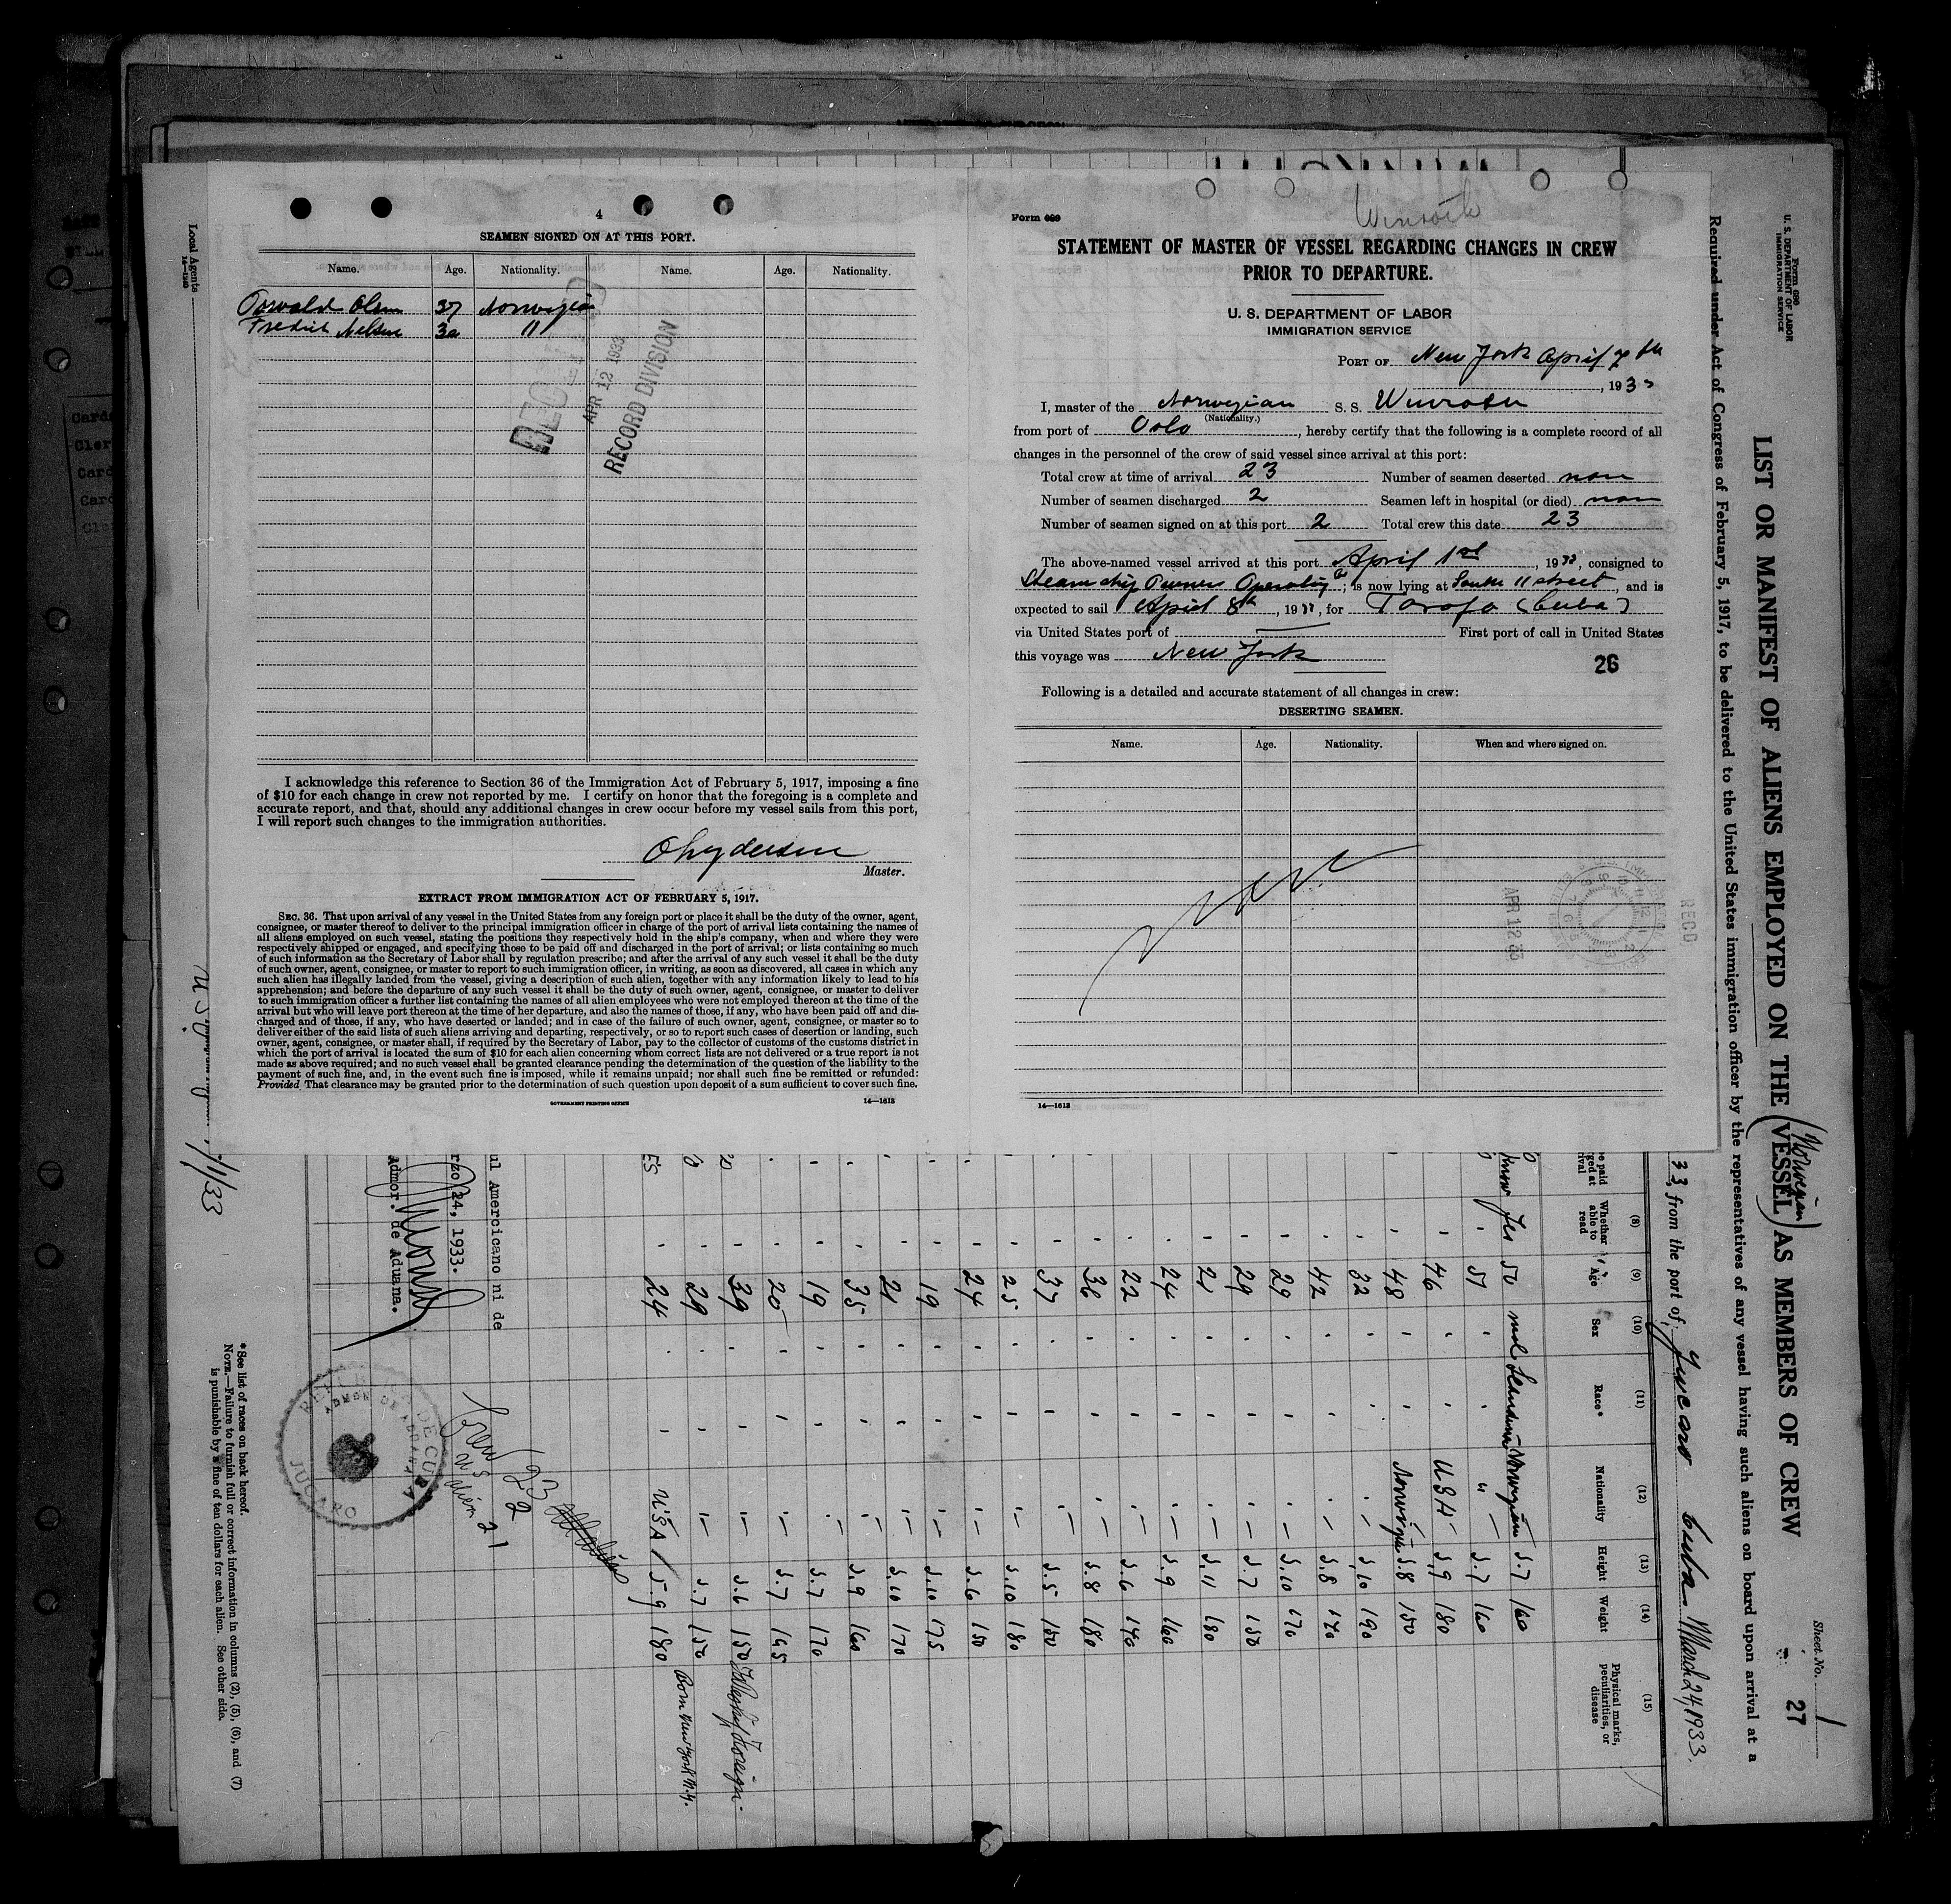 4
SEAMEN SIGNED ON AT THIS PORT.
Name. Age. Nationality. Name. Age. Nationality.
Osswald Olsen 37 Norwegian
Fredrik Nelsen 30 "
RECEIVED
APR 12 1933
RECORD DIVISION
I acknowledge this reference to Section 36 of the Immigration Act of February 5, 1917, imposing a fine
of $10 for each change in crew not reported by me. I certify on honor that the foregoing is a complete and
accurate report, and that, should any additional changes in crew occur before my vessel sails from this port,
I will report such changes to the immigration authorities.
Master.
EXTRACT FROM IMMIGRATION ACT OF FEBRUARY 5, 1917.
SEC. 36. That upon arrival of any vessel in the United States from any foreign port or place it shall be the duty of the owner, agent,
consignee, or master thereof to deliver to the principal immigration officer in charge of the port of arrival lists containing the names of
all aliens employed on such vessel, stating the positions they respectively hold in the ship's company, when and where they were
respectively shipped or engaged, and specifying those to be paid off and discharged in the port of arrival; or lists containing so much
of such information as the Secretary of Labor shall by regulation prescribe; and after the arrival of any such vessel it shall be the duty
of such owner, agent, consignee, or master to report to such immigration officer, in writing, as soon as discovered, all cases in which any
such alien has illegally landed from the vessel, giving a description of such alien, together with any information likely to lead to his
apprehension; and before the departure of any such vessel it shall be the duty of such owner, agent, consignee, or master to deliver
to such immigration officer a further list containing the names of all alien employees who were not employed thereon at the time of the
arrival but who will leave port thereon at the time of her departure, and also the names of those, if any, who have been paid off and dis-
charged and of those, if any, who have deserted or landed; and in case of the failure of such owner, agent, consignee, or master so to
deliver either of the said lists of such aliens arriving and departing, respectively, or so to report such cases of desertion or landing, such
owner, agent, consignee, or master shall, if required by the Secretary of Labor, pay to the collector of customs of the customs district in
which the port of arrival is located the sum of $10 for each alien concerning whom correct lists are not delivered or a true report is not
made as above required; and no such vessel shall be granted clearance pending the determination of the question of the liability to the
payment of such fine, and, in the event such fine is imposed, while it remains unpaid; nor shall such fine be remitted or refunded:
Provided, That clearance may be granted prior to the determination of such question upon deposit of a sum sufficient to cover such fine.
GOVERNMENT PRINTING OFFICE 14—1613
Form 689
STATEMENT OF MASTER OF VESSEL REGARDING CHANGES IN CREW
PRIOR TO DEPARTURE.
U. S. DEPARTMENT OF LABOR
IMMIGRATION SERVICE
PORT OF New York April 7th
, 193
I, master of the Norwegian S. S.
(Nationality.)
from port of Oslo, hereby certify that the following is a complete record of all
changes in the personnel of the crew of said vessel since arrival at this port:
Total crew at time of arrival 23 Number of seamen deserted non
Number of seamen discharged 2 Seamen left in hospital (or died) non
Number of seamen signed on at this port 2 Total crew this date 23
The above-named vessel arrived at this port April 1st, 1933, consigned to
Steamship Owners Operating Co; is now lying at South 11 street, and is
expected to sail April 8th, 1933, for Tarafa (Cuba)
via United States port of — First port of call in United States
this voyage was New York
26
Following is a detailed and accurate statement of all changes in crew:
DESERTING SEAMEN.
Name. Age. Nationality. When and where signed on.
APR 12 33
RECD
14—1613
Form 689
U. S. DEPARTMENT OF LABOR
IMMIGRATION SERVICE
Sheet No. 1
27
LIST OR MANIFEST OF ALIENS EMPLOYED ON THE (VESSEL) AS MEMBERS OF CREW
Norwegian
Required under Act of Congress of February 5, 1917, to be delivered to the United States immigration officer by the representatives of any vessel having such aliens on board upon arrival at a
33, from the port of Jucaro Cuba March 24, 1933.
(8) (9) (10) (11) (12) (13) (14) (15)
Whether able to read Age Sex Race* Nationality Height Weight Physical marks, peculiarities, or disease
know Yes 50 mal Norwegian 5.7 160
51 " 5.7 160
46 USA 5.9 180
48 Norwegian 5.8 150
32 5.10 190
42 5.8 140
29 5.10 170
29 5.7 150
21 5.11 180
24 5.9 160
22 5.6 140
36 5.8 180
37 5.5 150
25 5.10 180
24 5.6 150
19 5.10 175
21 5.10 170
35 5.9 160
19 5.7 170
20 5.7 145
39 5.6 150
29 5.7 150 Born New York N.Y.
24 USA 5.9 180
Crew 23
US 2
alien 21
ul Amercicano ni de
rzo 24, 1933.
Admor. de Aduana.
REPUBLICA DE CUBA
ADMON DE ADUANA
JUCARO
* See list of races on back hereof.
NOTE.—Failure to furnish full or correct information in columns (2), (5), (6), and (7)
is punishable by a fine of ten dollars for each alien. See other side.
Local Agents
14—1240